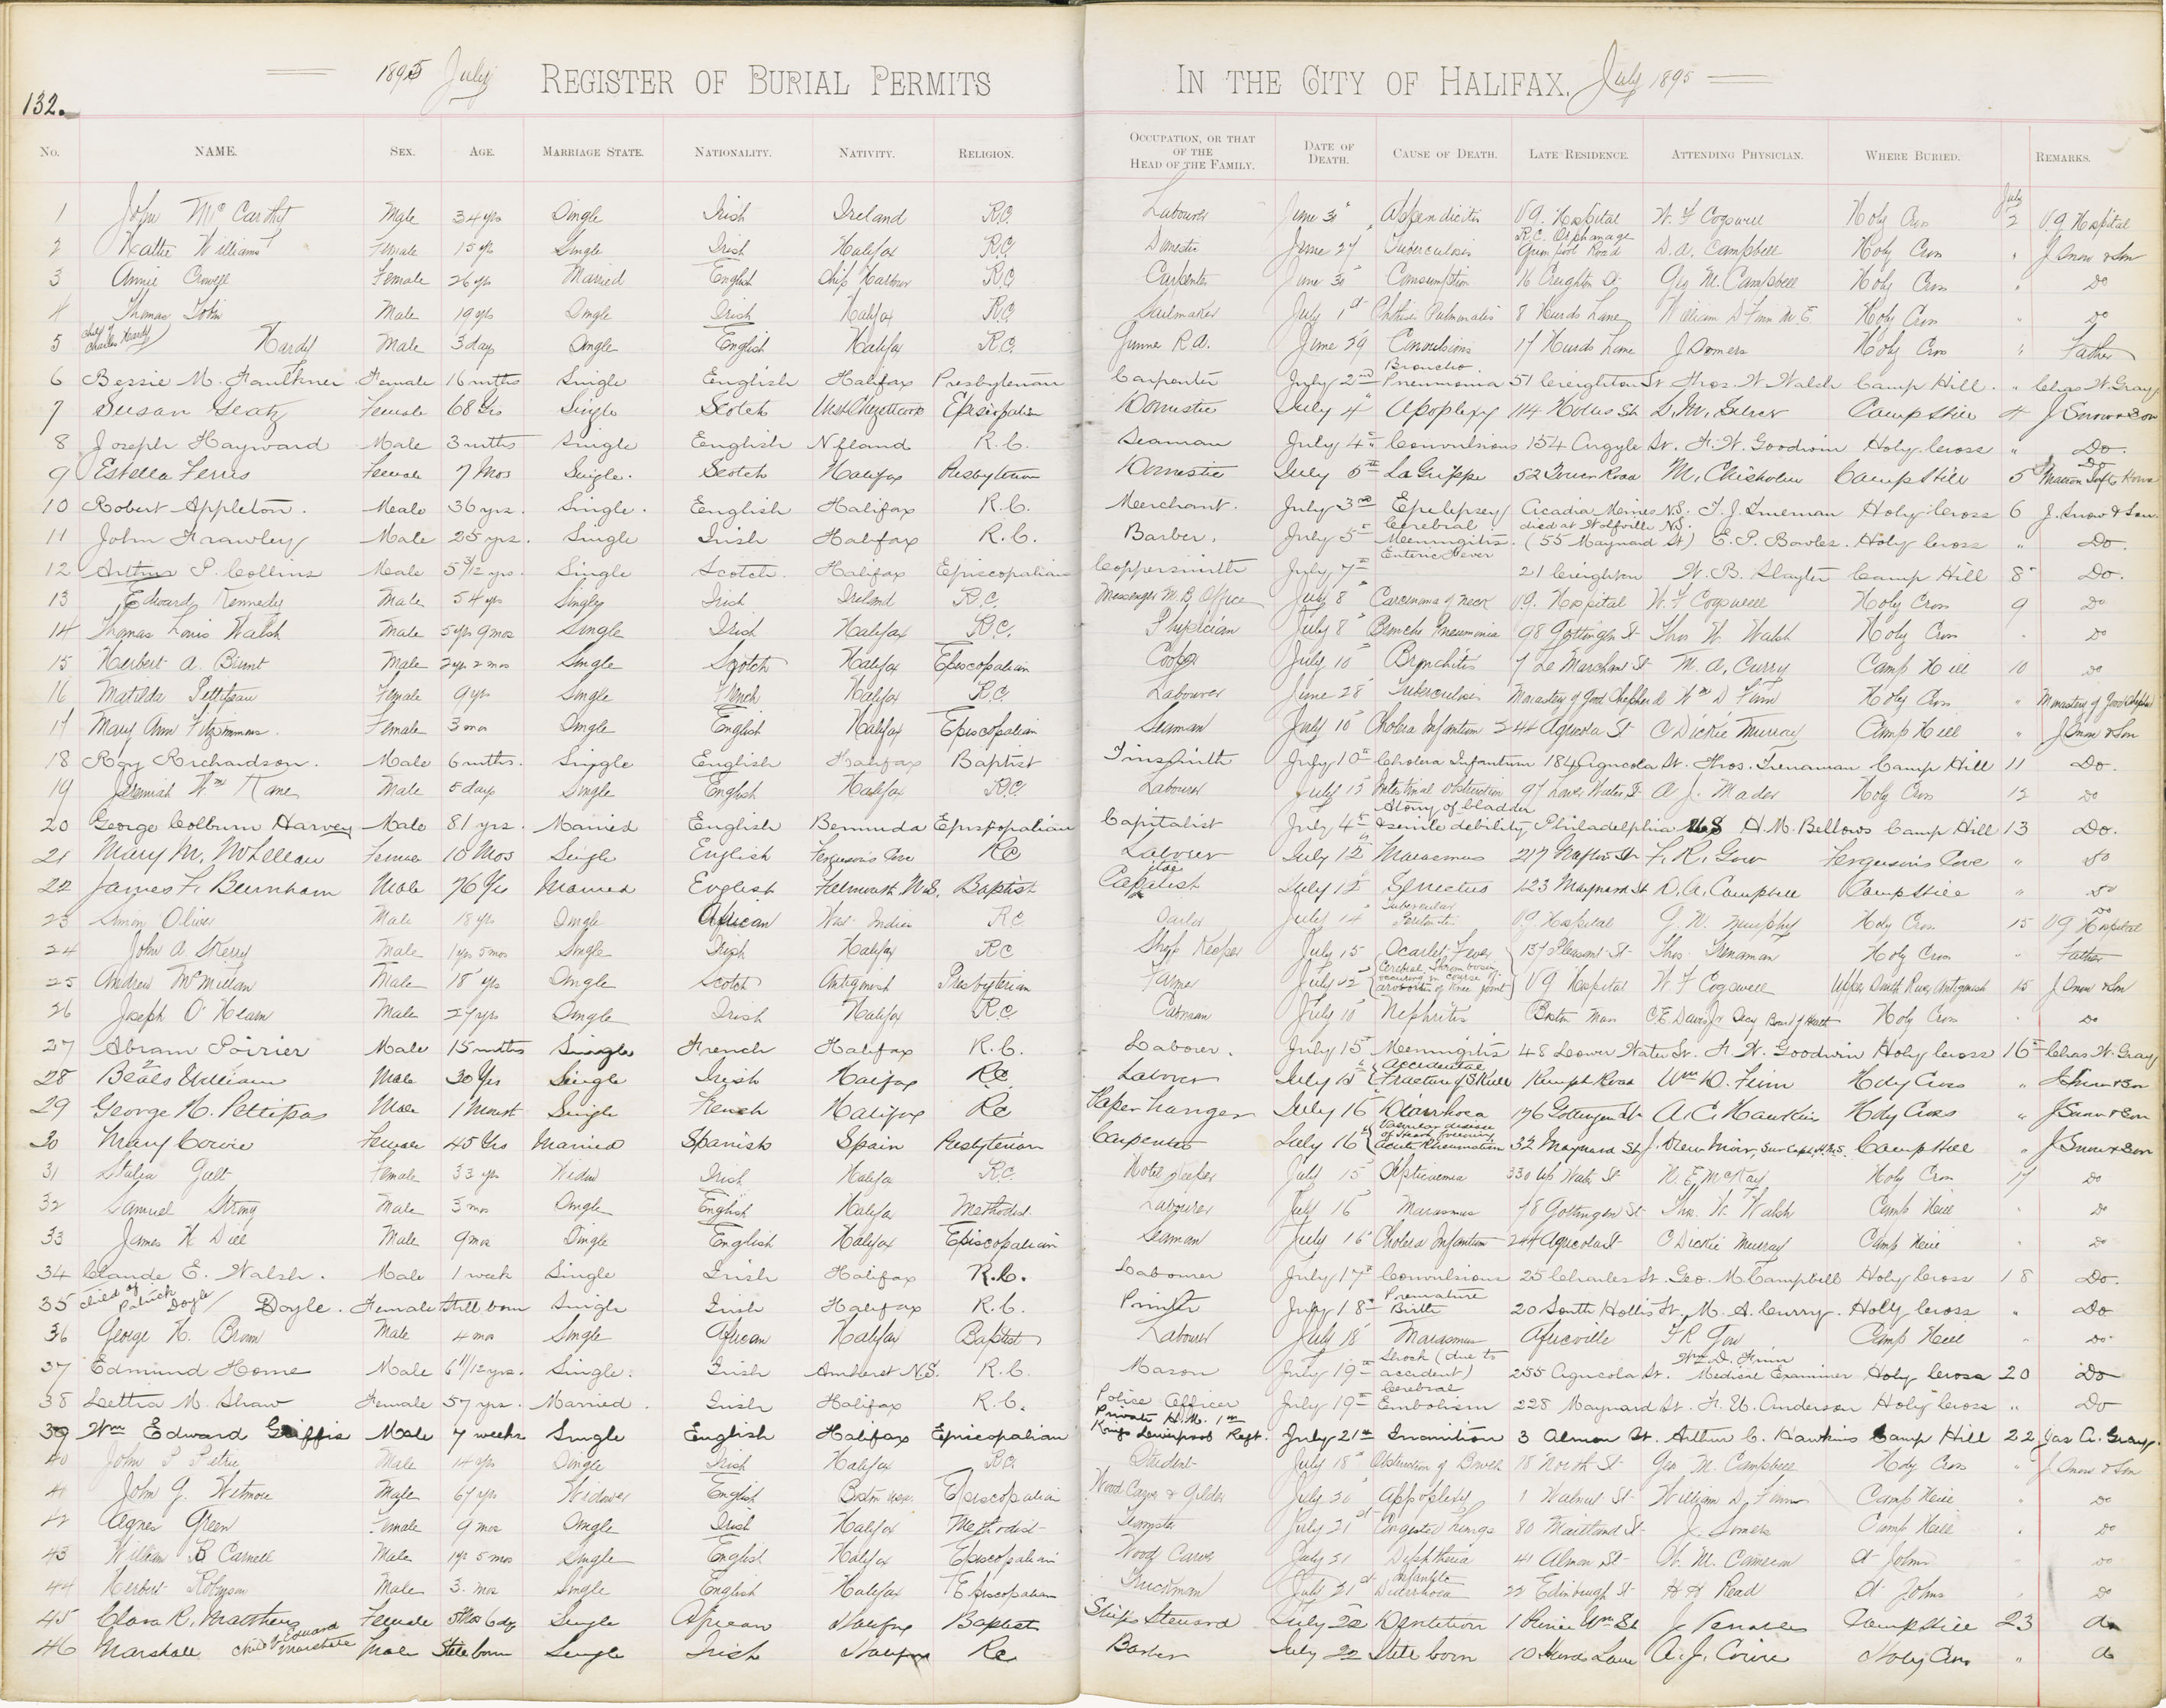 132.
1895 July REGISTER OF BURIAL PERMITS IN THE CITY OF HALIFAX. July 1895
No. NAME. SEX. AGE. MARRIAGE STATE. NATIONALITY. NATIVITY. RELIGION. OCCUPATION, OR THAT OF THE HEAD OF THE FAMILY. DATE OF DEATH. CAUSE OF DEATH. LATE RESIDENCE. ATTENDING PHYSICIAN. WHERE BURIED. REMARKS.
1 John McCarthy Male 34 yrs Single Irish Ireland R.C. Labourer June 30 Appendicitis V.G. Hospital W. F Cogswell Holy Cross July 2 V G Hospital
2 Hattie Williams Female 15 yrs Single Irish Halifax R.C. Domestic June 27 Tuberculosis R.C. Orphanage Quinpool Road D. A. Campbell Holy Cross " J Snow & Son
3 Annie Crowell Female 26 yrs Married English Ship Harbour R.C. Carpenter June 30 Consumption 16 Creighton St Geo M. Campbell Holy Cross " Do
4 Thomas Tobin Male 19 yrs Single Irish Halifax R.C. Sailmaker July 1st Phthisis Pulmonalis 8 Hurds Lane William D Finn M.E Holy Cross " Do
5 Child of Charles Hardy Hardy Male 3 days Single English Halifax R.C. Gunner R.A. June 29 Convulsions 17 Hurds Lane J Somers Holy Cross " Father
6 Bessie M. Faulkner Female 16 mths Single English Halifax Presbyterian Carpenter July 2nd Broncho Pneumonia 51 Creighton St Thos. W. Walsh Camp Hill. " Chas W. Gray
7 Susan Seatz Female 68 Yrs Single Scotch West Chezzetcook Episcopalian Domestic July 4 Apoplexy 114 Hollis St. Camp Hill 4 J Snow & Son
8 Joseph Hayward Male 3 mths Single English Nfland R.C. Seaman July 4th Convulsions 154 Argyle St. F. W. Goodwin Holy Cross " Do.
9 Estella Ferris Female 7 Mos Single. Scotch Halifax Presbyterian Domestic July 5th La Grippe 52 Tower Road M. Chisholm Camp Hill 5 Do Matron Infts Home
10 Robert Appleton. Male 36 yrs. Single. English Halifax R.C. Merchant. July 3rd Epilepsy Acadia Mines N.S. died at Wolfville N.S. Holy Cross 6 J. Snow & Son.
11 John Frawley Male 25 yrs. Single Irish Halifax R.C. Barber. July 5th Cerebral Meningitis. (55 Maynard St) E. P. Bowles. Holy Cross " Do.
12 Arthur P. Collins Male 5 3/12 yrs. Single Scotch. Halifax Episcopalian Coppersmith July 7th Enteric Fever 21 Creighton W. B. Slayter Camp Hill 8 Do.
13 Edward Kennedy Male 54 yrs Single Irish Ireland R.C. Messenger M.B Office July 8 Carcinoma of Neck V.G. Hospital W. F Cogswell Holy Cross 9 Do
14 Thomas Louis Walsh Male 5 yrs 9 mos Single Irish Halifax R.C. Physician July 8 Broncho Pneumonia 98 Gottingen St Thos W. Walsh Holy Cross " Do
15 Herbert A. Blunt Male 2 yrs 2 mos Single Scotch Halifax Episcopalian Cooper July 10 Bronchitis 7 Le Marchant St M. A. Curry Camp Hill 10 Do
16 Matilda Pettipau Female 9 yrs Single French Halifax R.C. Labourer June 28 Tuberculosis Monastery of Good Shepherd Wm D Finn Holy Cross " Monastery of Good Shepherd
17 Mary Ann Fitzsimmons. Female 3 mos Single English Halifax Episcopalian Seaman July 10 Cholera Infantum 244 Agricola St C Dickie Murray Camp Hill " J Snow & Son
18 Roy Richardson. Male 6 mths. Single English Halifax Baptist Tinsmith July 10th Cholera Infantum 184 Agricola St. Thos. Trenaman Camp Hill 11 Do.
19 Jeremiah Wm Kane Male 5 days Single English Halifax R.C. Labourer July 13 Intestinal Obstruction 97 Lower Water St A J. Mader Holy Cross 12 Do
20 George Colburn Harvey Male 81 yrs. Married English Bermuda Episcopalian Capitalist July 4th Atony of bladder & senile debility Philadelphia U.S H. M. Bellows Camp Hill 13 Do.
21 Mary M. McLellan Female 10 Mos Single English Ferguson's Cove RC Labourer July 12 Marasmus 217 Grafton St F. R. Gow Ferguson's Cove " Do
22 James F. Burnham Male 76 Yrs Married English Falmouth N.S. Baptist Capitalist July 12 Senectus 123 Maynard St D. A. Campbell Camp Hill " Do
23 Simon Oliver Male 18 yrs Single African West Indies RC Sailor July 14 Tubercular Peritonitis V G Hospital G. M. Murphy Holy Cross 15 Do V G Hospital
24 John A. Skerry Male 1 yrs 5 mos Single Irish Halifax RC Shop Keeper July 15 Scarlet Fever 137 Pleasant St Thos. Trenaman Holy Cross " Father
25 Andrew McMillan Male 18 yrs Single Scotch Antigonish Presbyterian Farmer July 12 Cerebral Thrombosis occurring in course of of Knee joint V G Hospital W F Cogswell Upper South River Antigonish 15 J Snow & Son
26 Joseph O'Hearn Male 27 yrs Single Irish Halifax R.C. Cabman July 10 Nephritis Boston Mass C E Davis Jr Secy Board of Health Holy Cross " Do
27 Abram Poirier Male 15 mths Single French Halifax R.C. Laborer. July 15 Meningitis 48 Lower Water St. F. W. Goodwin Holy Cross 16 Chas W. Gray
28 Beals William Male 30 Yrs Single Irish Halifax RC. Laborer July 15 Accidental Fracture of Skull Kempt Road Wm D. Finn Holy Cross " J Snow & Son
29 George H. Pettipas Male 1 Month Single French Halifax RC Paper hanger July 16 Diarrhoea 176 Gottingen St A. C. Hawkins Holy Cross " J Snow & Son
30 Mary Cowie Female 45 Yrs Married Spanish Spain Presbyterian Carpenter July 16 Valvular disease of Heart following acute Rheumatism 32 Maynard St Camp Hill " J Snow & Son
31 Stalia Galt Female 33 yrs Widow Irish Halifax R.C. Hotel Keeper July 15 Septicaemia 330 Up Water St N. E. McKay Holy Cross 17 Do
32 Samuel Strong Male 3 mos Single English Halifax Methodist Labourer July 16 Marasmus 78 Gottingen St Thos. W. Walsh Camp Hill " Do
33 James H Dill Male 9 mos Single English Halifax Episcopalian Seaman July 16 Cholera Infantum 244 Agricola St C Dickie Murray Camp Hill " Do
34 Claude E. Walsh. Male 1 week Single Irish Halifax R.C. Labourer July 17th Convulsions 25 Charles St. Geo. M. Campbell Holy Cross 18 Do.
35 Child of Patrick Doyle Doyle. Female Still born Single Irish Halifax R.C. Printer July 18th Premature Birth 20 South Hollis St. M. A. Curry. Holy Cross " Do
36 George H. Brown Male 4 mos Single African Halifax Baptist Labourer July 18 Marasmus Africville F R Gow Camp Hill " Do
37 Edmund Horne Male 6 11/12 yrs. Single. Irish Amherst N.S. R.C. Mason July 19th Shock (due to accident) 255 Agricola St. Wm D. Finn Medical Examiner Holy Cross 20 Do
38 Lettia M. Shaw Female 57 yrs. Married. Irish Halifax R.C. Police Officer July 19th Cerebral Embolism 228 Maynard St. F. U. Anderson Holy Cross " Do
39 Wm Edward Griffis Male 7 weeks Single English Halifax Episcopalian Private H.M. 1st Kings Liverpool Regt. July 21st Inanition 3 Almon St. Arthur C. Hawkins Camp Hill 22 Jas A. Gray.
40 John P Petrie Male 14 yrs Single Irish Halifax R.C. Student July 18 Obstruction of Bowels 18 North St Geo M. Campbell Holy Cross " J. Snow & Son
41 John G. Wetmore Male 67 yrs Widower English Boston Episcopalian Wood Carver & Gilder July 20 Appoplexy 1 Walnut St William D. Finn Camp Hill " Do
42 Agnes Green Female 9 mos Single Irish Halifax Methodist Teamster July 21st Congested Lungs 80 Maitland St J. Somers Camp Hill " Do
43 William B Carnell Male 1 yr 5 mos Single English Halifax Episcopalian Wood Carver July 21 Diphtheria 41 Almon St W. M. Cameron St Johns " Do
44 Herbert Robyson Male 3. mos Single English Halifax Episcopalian Truckman July 21st Infantile Diarrhoea 22 Edinburgh St H H Read St Johns " Do
45 Clara R. Matthews Female 5 Mos 6 dys Single African Halifax Baptist Ships Steward July 22 Dentition 1 Prince Wm St J. Venables Camp Hill 23 do
46 Marshall child of Edward Marshall Male Still born Single Irish Halifax RC Barber July 22 Still born 10 Hurds Lane A. J. Cowie Holy Cross " do